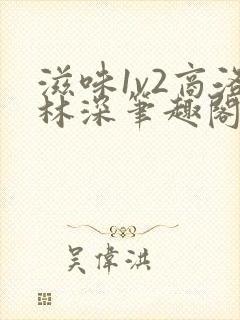 滋味1v2高洛
林深笔趣阁
吴偉洪